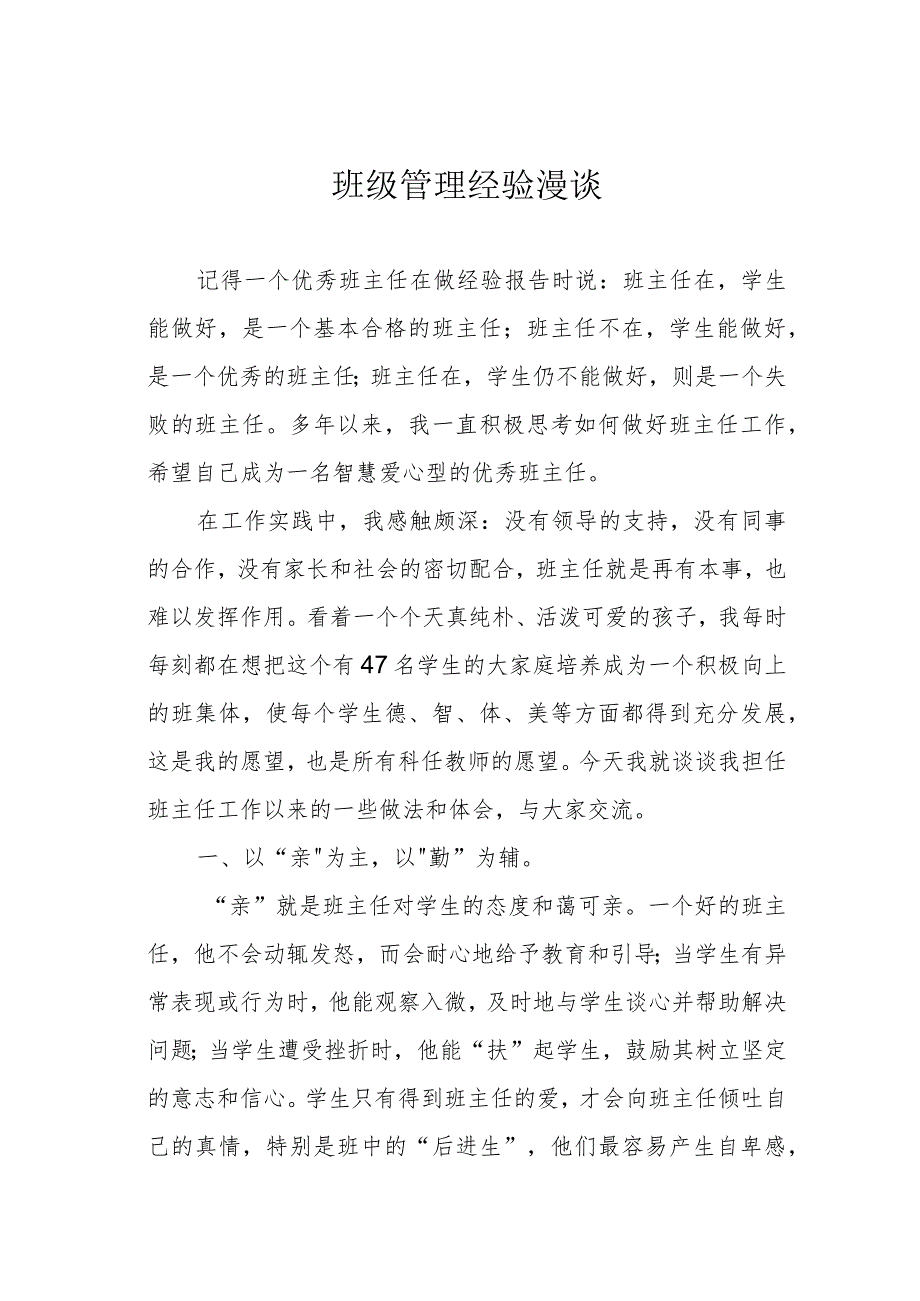 班级管理经验漫谈
记得一个优秀班主任在做经验报告时说：班主任在，学生
能做好，是一个基本合格的班主任；班主任不在，学生能做好，
是一个优秀的班主任；班主任在，学生仍不能做好，则是一个失
败的班主任。多年以来，我一直积极思考如何做好班主任工作，
希望自己成为一名智慧爱心型的优秀班主任。
在工作实践中，我感触颇深：没有领导的支持，没有同事
的合作，没有家长和社会的密切配合，班主任就是再有本事，也
难以发挥作用。看着一个个天真纯朴、活泼可爱的孩子，我每时
每刻都在想把这个有47名学生的大家庭培养成为一个积极向上
的班集体，使每个学生德、智、体、美等方面都得到充分发展，
这是我的愿望，也是所有科任教师的愿望。今天我就谈谈我担任
班主任工作以来的一些做法和体会，与大家交流。
一、以“亲"为主，以"勤”为辅。
“亲”就是班主任对学生的态度和蔼可亲。一个好的班主
任，他不会动辄发怒，而会耐心地给予教育和引导；当学生有异
常表现或行为时，他能观察入微，及时地与学生谈心并帮助解决
问题；当学生遭受挫折时，他能“扶”起学生，鼓励其树立坚定
的意志和信心。学生只有得到班主任的爱，才会向班主任倾吐自
己的真情，特别是班中的“后进生”，他们最容易产生自卑感，